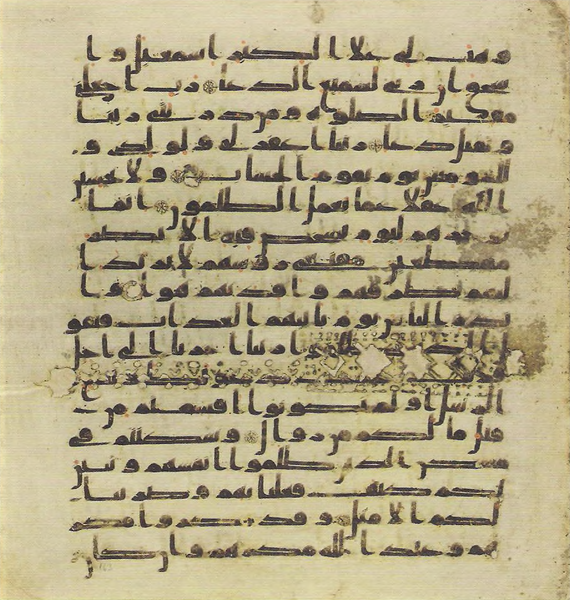 وهب لي على الكبر اسمعيل و ا
سحق ان ربي لسميع الدعا رب اجعلني
مقيم الصلوه ومن ذريتي ربنا
و تقبل دعا ربنا اغفر لي و لولدي و
للمومنين يوم يقوم الحساب ولا تحسبن
الله غفلا عما يعمل الظلمون انما
يوخرهم ليوم تشخص فيه الابصر
مهطعين مقنعي روسهم لا يرتد ا
ليهم طرفهم وافدتهم هوا و ا
نذر الناس يوم ياتيهم العذاب فيقو
ل الذين ظلموا ربنا اخرنا الى اجل
قريب نجب دعوتك ونتبع
الرسل او لم تكونوا اقسمتم من
قبل ما لكم من زوال وسكنتم في
مسكن الذين ظلموا انفسهم و تبين
لكم كيف فعلنا بهم وضربنا
لكم الامثل وقد مكروا مكر
هم وعند الله مكرهم و ان كان